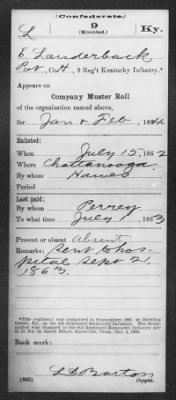 (Confederate.)
9
(Mounted.)
L
Ky.
E. Lauderback
Pvt, Co. H, 9 Reg't Kentucky Infantry.*
Appears on
Company Muster Roll
of the organization named above,
for Jan & Feb, 1864.
Enlisted:
When July 15, 1862
Where Chattanooga
By whom Hawes
Period
Last paid:
By whom Perrey
To what time July 1, 1863
Present or absent Absent
Remarks: Sent to hos-
pital Sept 21,
1863.
Book mark:
(642)
Copyist.